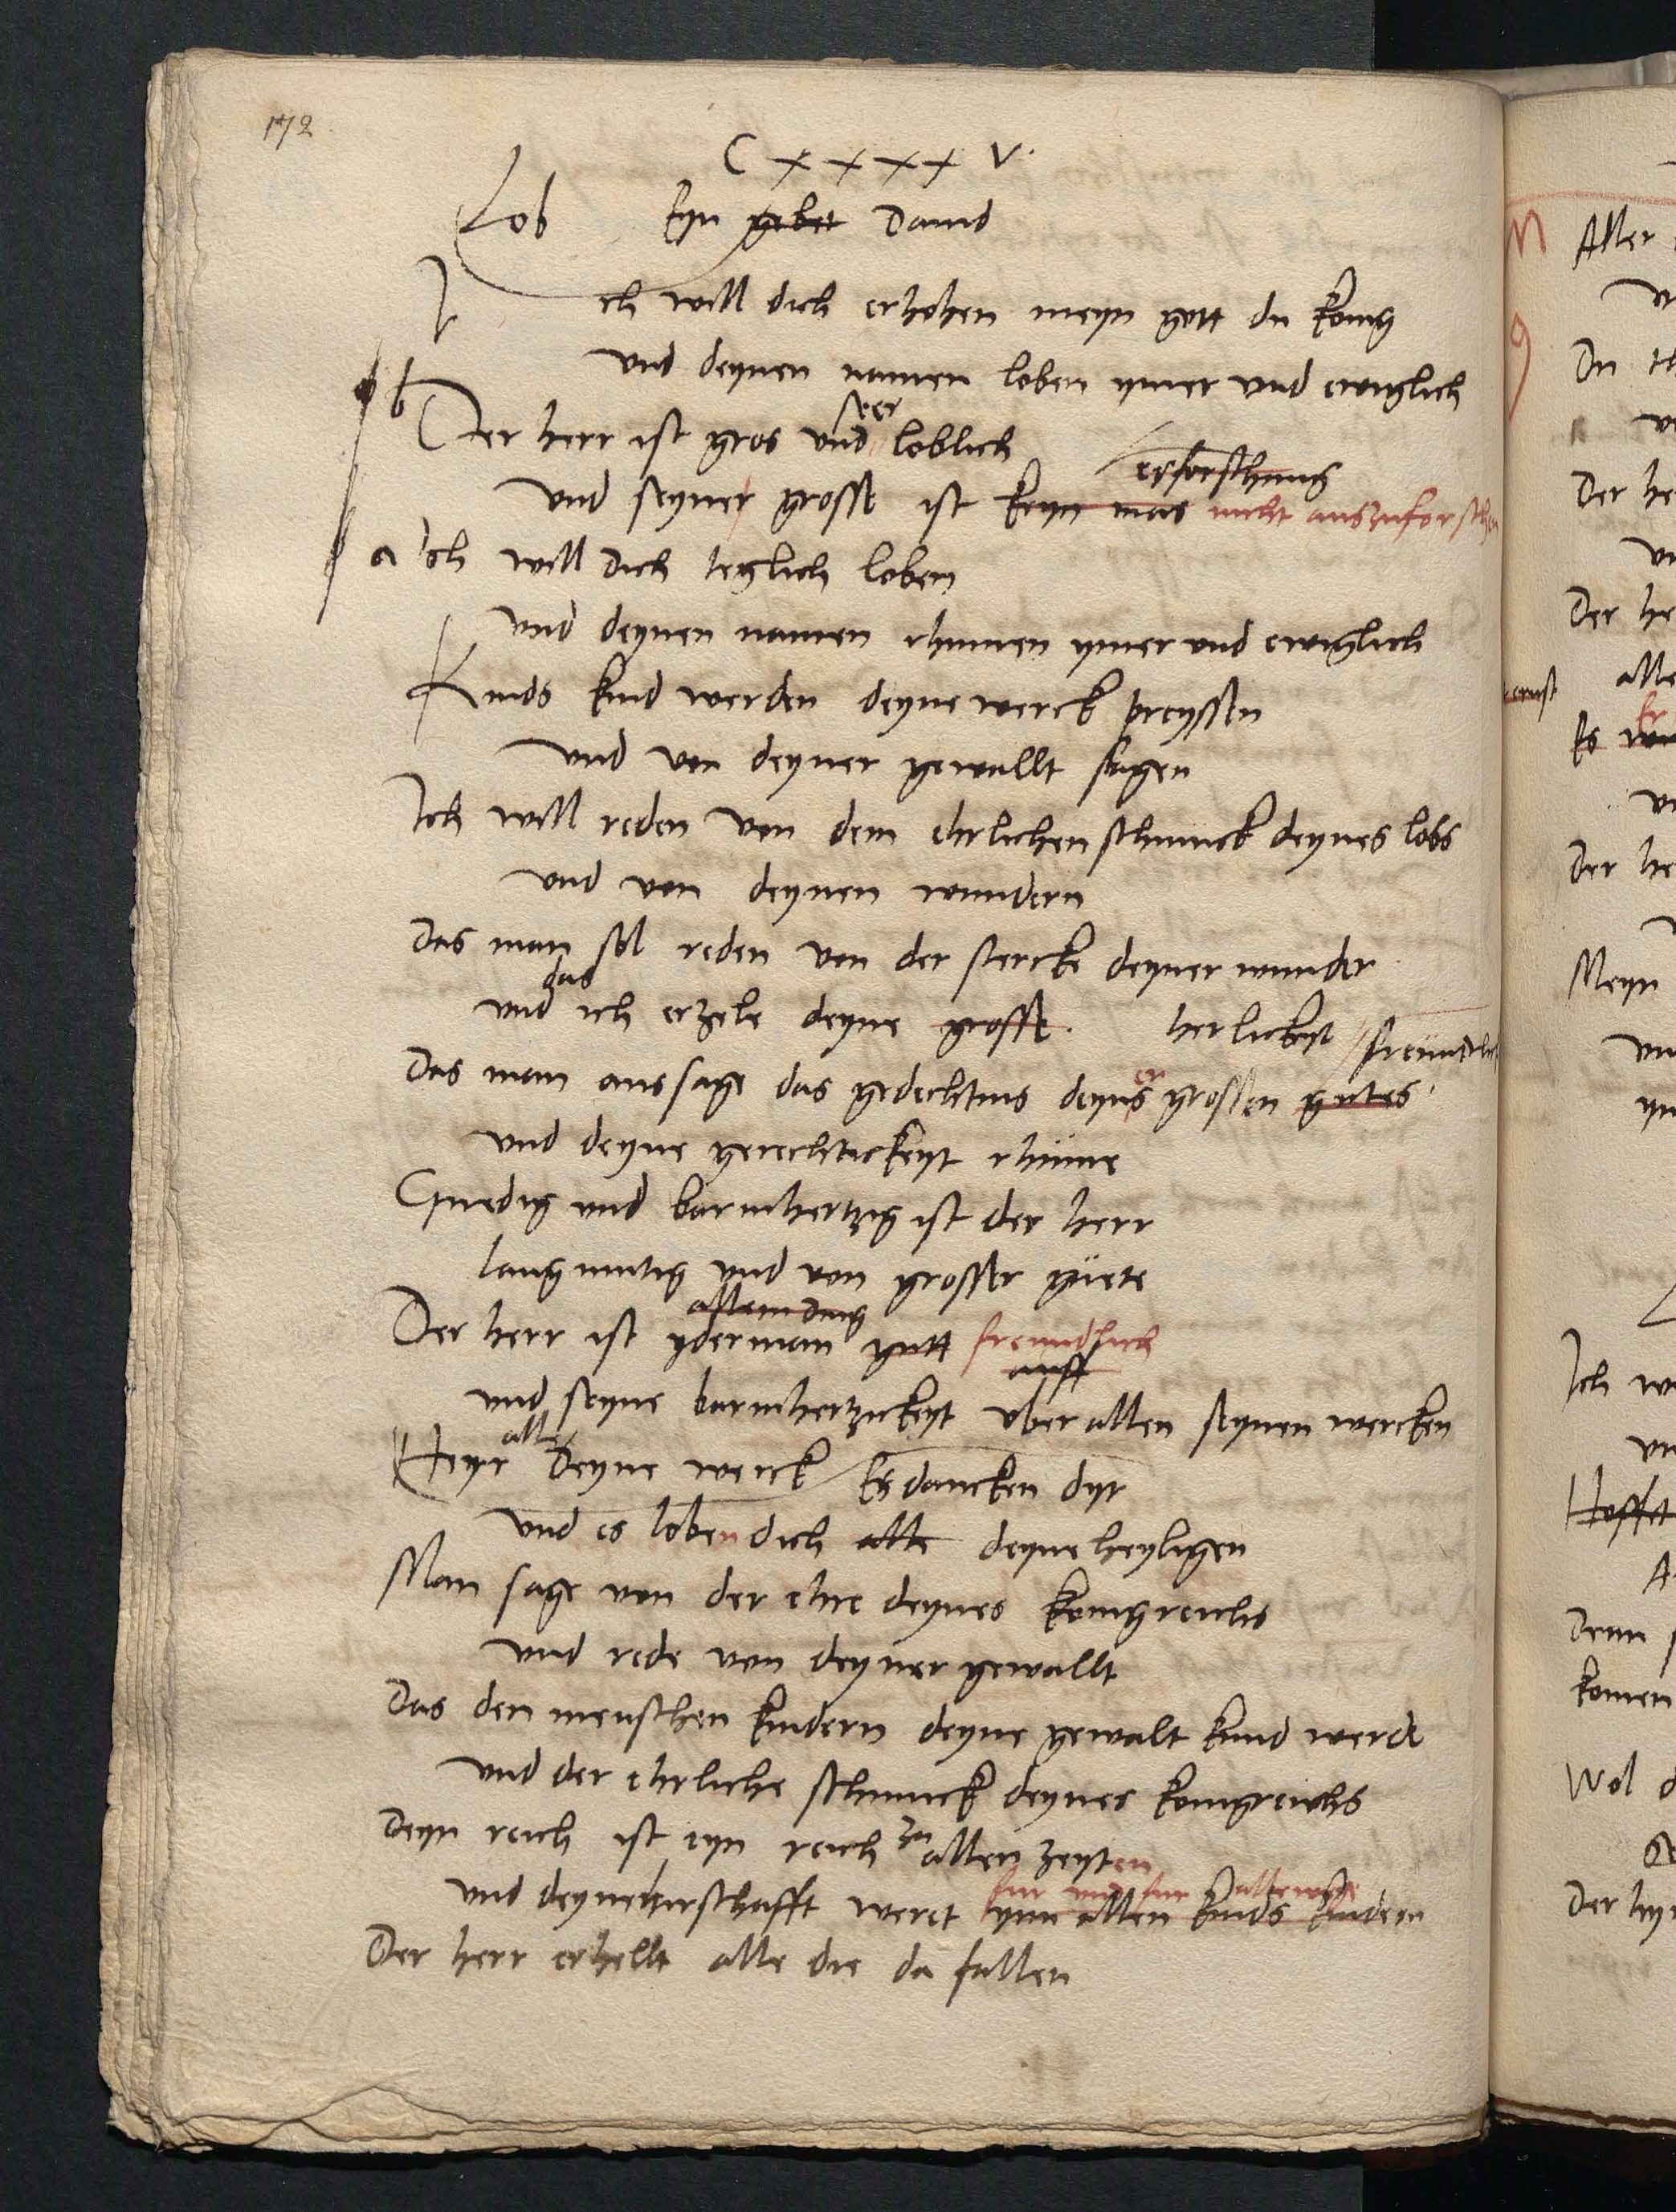 172
C x x x x V.
Lob Eyn gebet Dauid
Ich will dich erhohen meyn gott du konig
vnd deynen namen loben ymer vnd ewiglich
b Der herr ist gros vnd seer loblich
erforschung
vnd seyner grosse ist keyn mas nicht auszuforschen
a Ich will dich teglich loben
vnd deynen namen rhumen ymer vnd ewiglich
Kinds kind werden deyne werck preyssen
vnd von deyner gewallt sagen
Ich will reden von dem ehrlichen schmuck deynes lobs
vnd von deynen wundern
Das man sol reden von der stercke deyner wunder
vnd das ich erzele deyne grosse. herlickeyt
Das man aussage das gedechtnis deyns er grossen gutes
vnd deyne gerechtickeyt rhüme
Gnedig vnd barmhertzig ist der herr
langmutig vnd von grosser güete
allem ding
Der herr ist yderman gutt freundlich
auff
vnd seyne barmhertzickeyt vber allen seynen wercken
Herr alle Deyne werck Es dancken dyr
vnd es loben dich alle deyne heyligen
Man sage von der ehre deynes konigreichs
vnd rede von deyner gewallt
Das den menschen kindern deyne gewalt kund werde
vnd der ehrliche schmuck deynes konigreichs
Deyn reich ist eyn reich zu allen zeyten
fur vnd fur allewege
vnd deyne herschafft weret ynn allen kinds kindern
Der herr erhellt alle die da fallen
Aller
Du
Der he
Der he
alle
Er
Es
Der he
Meyn
Ich w
Hoffet
Denn
komen
Wol d
Der